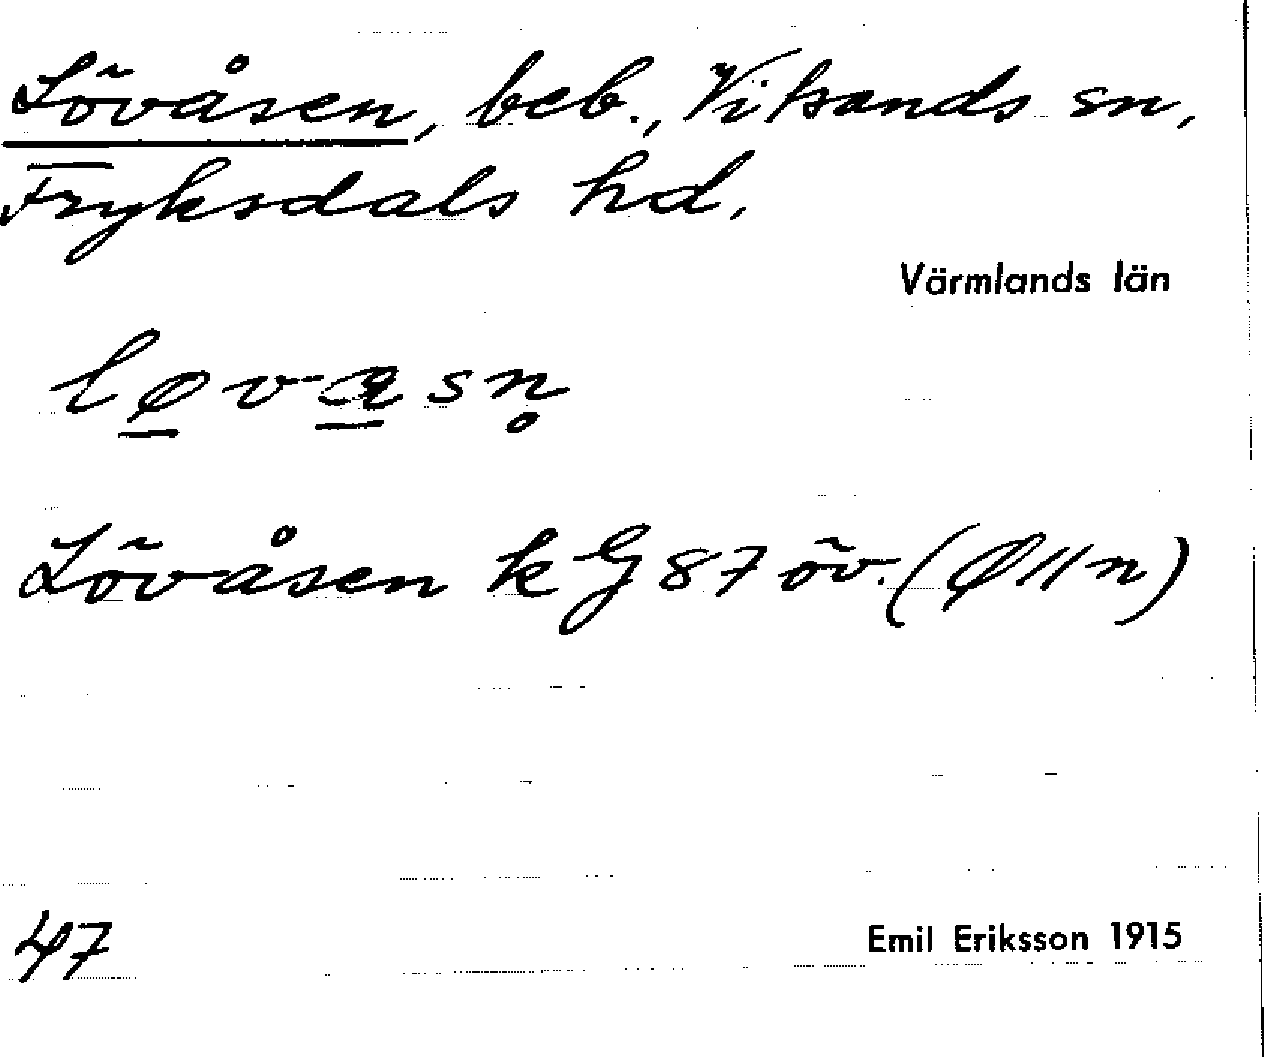 Lövåsen, beb., Vitsands sn,
Fryksdals hd.
Värmlands län
løvasn̥
Lövåsen k G 87 öv. (Ø11n)
47
Emil Eriksson 1915